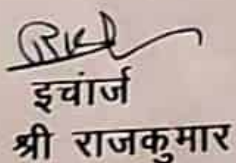 इचांर्ज
श्री राजकुमार